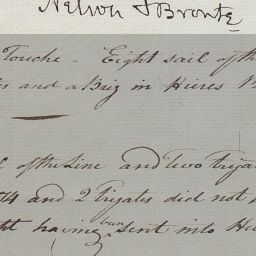 Nelson & Bronte
Touche - Eight sail of the
and a Brig in Hieres B
of the Line and Two Friga
74 and 2 Frigates did not
having been sent into Hi